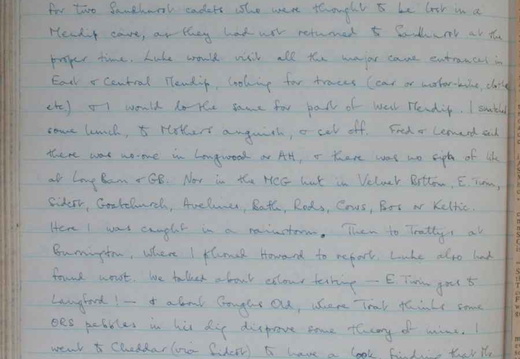 for two Sandhurst cadets who were thought to be lost in a
Mendip cave, as they had not returned to Sandhurst at the
proper time. Luke would visit all the major cave entrances in
East & Central Mendip, looking for traces (car or motor-bike, clothes
etc) & I would do the same for part of West Mendip. I snatched
some lunch, to Mother's anguish, & set off. Fred & Leonard said
there was no-one in Longwood or AH, & there was no sign of life
at Long Barn & GB. Nor in the MCG hut in Velvet Bottom, E. Twin,
Sidcot, Goatchurch, Avelines, Bath, Rods, Cows, Bos or Keltic.
Here I was caught in a rainstorm. Then to Tratty's at
Burrington, where I phoned Howard to report. Luke also had
found nowt. We talked about colour testing — E. Twin goes to
Langford! — & about Goughs Old, where Trat thinks some
ORS pebbles in his dig disprove some theory of mine. I
went to Cheddar (via Sidcot) to have a look, finding that the